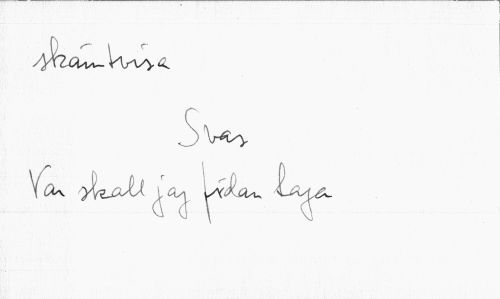 skämtvisa
Svar
Var skall jag sidan taga